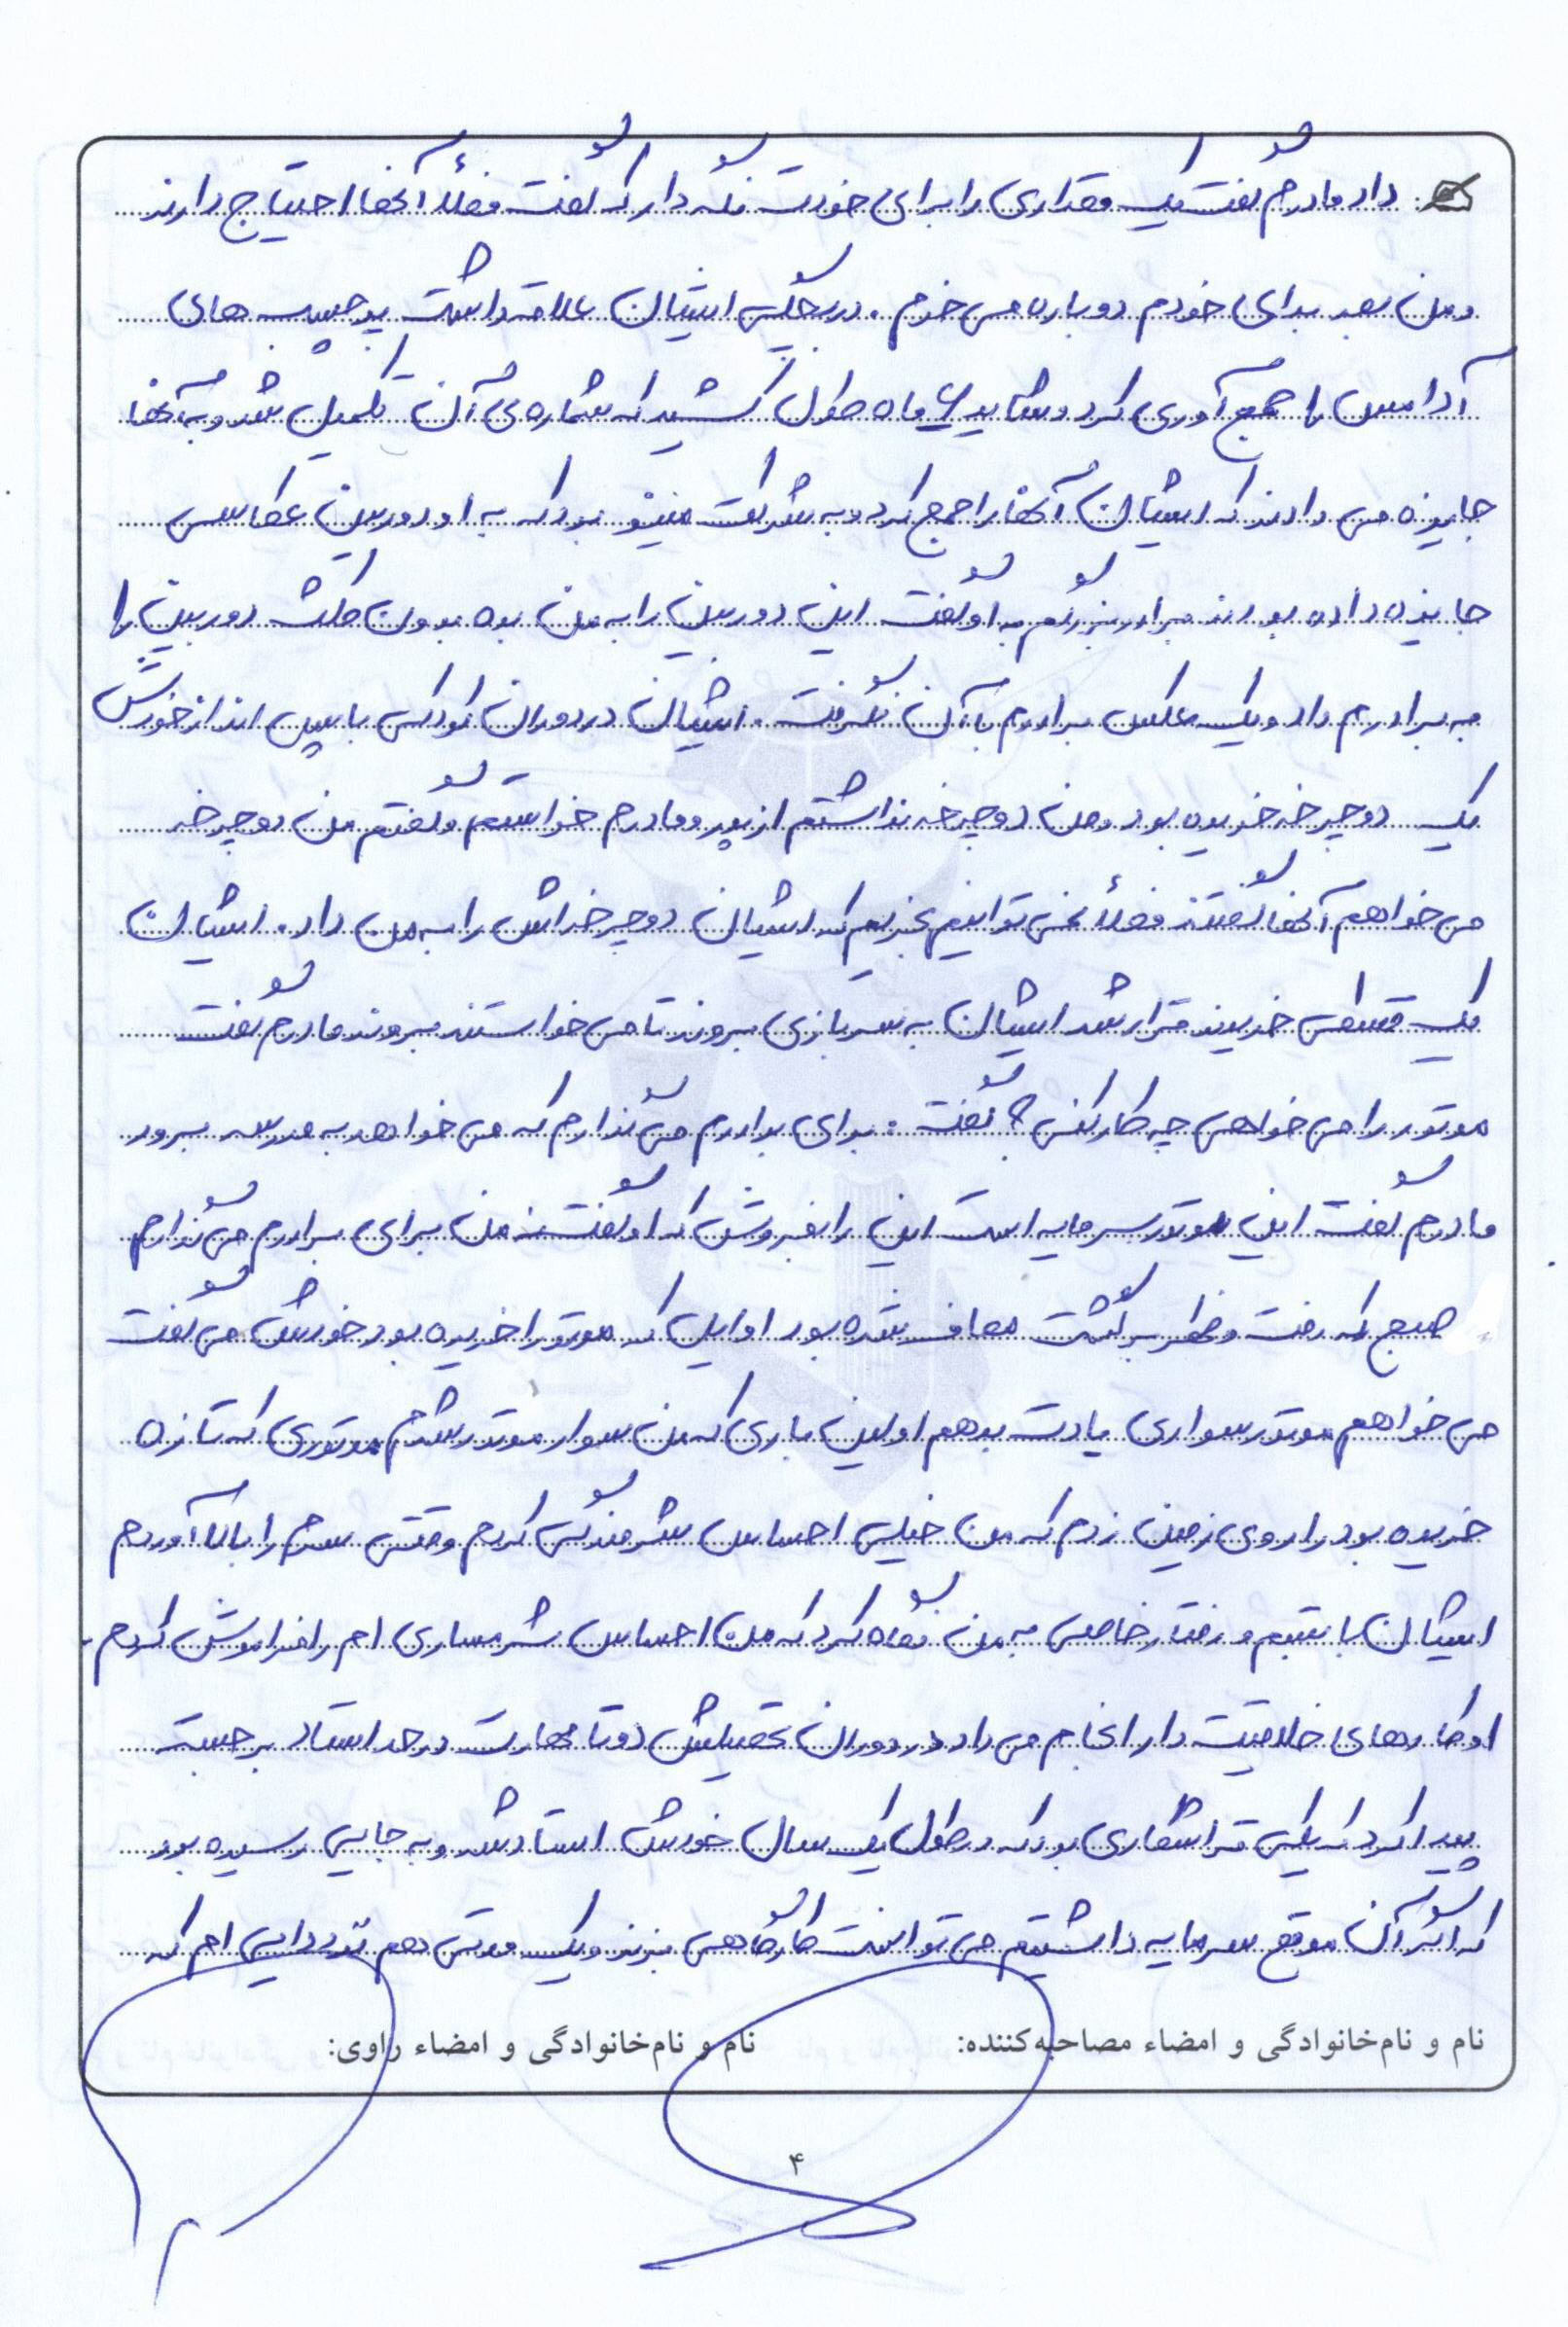 داد مادرم گفت یک مقداری را برای خودت نگه دار که گفت فعلاً آنها احتیاج دارند
و من بعد برای خودم دوباره می خرم . در بچگی ایشان علاقه داشت برچسب های
آدامس را جمع آوری کرد و شاید ۶ ماه طول کشید که شماره ی آن تکمیل شد و به آنها
جایزه می دادند که ایشان آنها را جمع کرد و به شرکت مینو بود که به او دوربین عکاسی
جایزه داده بودند برادر بزرگم به او گفت این دوربین را به من بده بدون مکث دوربین را
به برادرم داد و یک عکس برادرم با آن نگرفت . ایشان در دوران کودکی با پس انداز خودش
یک دوچرخه خریده بود و من دوچرخه نداشتم از پدر و مادرم خواستم و گفتم من دوچرخه
می خواهم آنها گفتند فعلاً نمی توانیم بخریم که ایشان دوچرخه اش را به من داد . ایشان
یک قسطی خریدند قرار شد ایشان به سربازی بروند تا می خواستند بروند مادرم گفت
موتور را می خواهی چه کار کنی ؟ گفت : برای برادرم می گذارم که می خواهد به مدرسه برود
مادرم گفت این موتور سرمایه است این را بفروش که او گفت نه من برای برادرم می گذارم
صبح که رفت و ظهر برگشت معاف شده بود اوایل که موتور را خریده بود خودش می گفت
می خواهم موتور سواری یادت بدهم اولین باری که من سوار موتور شدم موتوری که تازه
خریده بود را روی زمین زدم که من خیلی احساس شرمندگی کردم وقتی سرم را بالا آوردم
ایشان با تبسم و رفتار خاصی به من نگاه کرد که من احساس شرمساری ام را فراموش کردم .
او کارهای خلاقیت دار انجام می داد در دوران تحصیلش دو تا مهارت در حد استاد برجسته
پیدا کرد که یکی تراشکاری بود که در طول یک سال خودش استاد شد و به جایی رسیده بود
که اگر آن موقع سرمایه داشتیم می توانست کارگاهی بزند و یک مدتی هم نزد دایی ام که
نام و نام‌خانوادگی و امضاء مصاحبه‌کننده: نام و نام‌خانوادگی و امضاء راوی:
۴